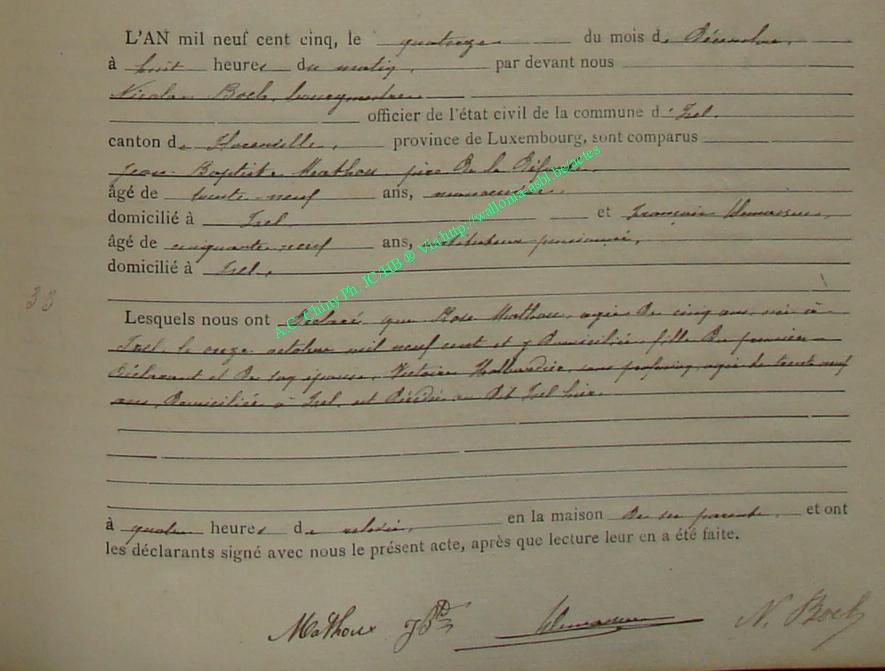 L'AN mil neuf cent cinq, le quatorze du mois de Décembre,
à huit heures du matin, par devant nous
Nicolas Boch, bourgmestre
officier de l'état civil de la commune d'Izel,
canton de Florenville, province de Luxembourg, sont comparus
Jean Baptiste Mathoux, père de la Défunte,
âgé de trente-neuf ans,
domicilié à Izel et François
âgé de cinquante-neuf ans, instituteur pensionné,
domicilié à Izel,
33
Lesquels nous ont déclaré que Rose Mathoux, agée de cinq ans, née à
Izel, le onze octobre mil neuf cent et y domiciliée, fille du premier
déclarant et de son épouse, Victoire Hallardier, sans profession, agée de trente neuf
ans, domiciliée à Izel, est décédée au dit Izel hier,
à quatre heures de relevée, en la maison de ses parents, et ont
les déclarants signé avec nous le présent acte, après que lecture leur en a été faite.
Mathoux JBte N. Boch
A.C. Chiny Ph. JC/HB ® Via http://wallonia-asbl.be/actes